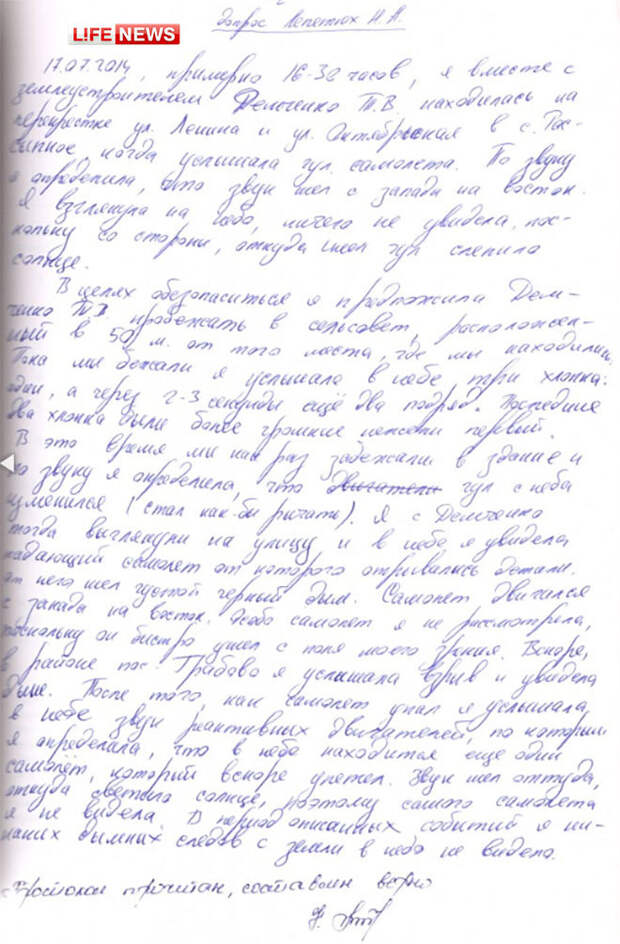 LIFE NEWS
допрос Лепетюх Н.А.
17.07.2014, примерно 16-30 часов, я вместе с
землеустроителем Демченко Т.В. находилась на
перекрестке ул. Ленина и ул. Октябрьская в с. Рас-
сыпное когда услышала гул самолета. По звуку
я определила, что звук шел с запада на восток.
Я взглянула на небо, ничего не увидела, пос-
кольку со стороны, откуда шел гул слепило
солнце.
В целях обезопаситься я предложила Дем-
ченко Т.В. пробежать в сельсовет, расположен-
ный в 50 м. от того места, где мы находились.
Пока мы бежали я услышала в небе три хлопка:
один, а через 2-3 секунды ещё два подряд. Последние
два хлопка были более громкие нежели первый.
В это время мы как раз забежали в здание и
по звуку я определила, что двигатели гул с неба
изменился (стал как-бы рычать). Я с Демченко
тогда выглянули на улицу и в небе я увидела
падающий самолет от которого отрывались детали.
от него шел густой черный дым. Самолет двигался
с запада на восток. Особо самолет я не рассмотрела,
поскольку он быстро ушел с поля моего зрения. Вскоре,
в районе пос. Грабово я услышала взрыв и увидела
дым. После того, как самолет упал я услышала
в небе звук реактивных двигателей, по которым
я определила, что в небе находится еще один
самолёт, который вскоре улетел. Звук шел оттуда,
откуда светило солнце, поэтому самого самолета
я не видела. В период описанных событий я ни-
каких дымных следов с земли в небо не видела.
Протокол прочитан, составлен верно